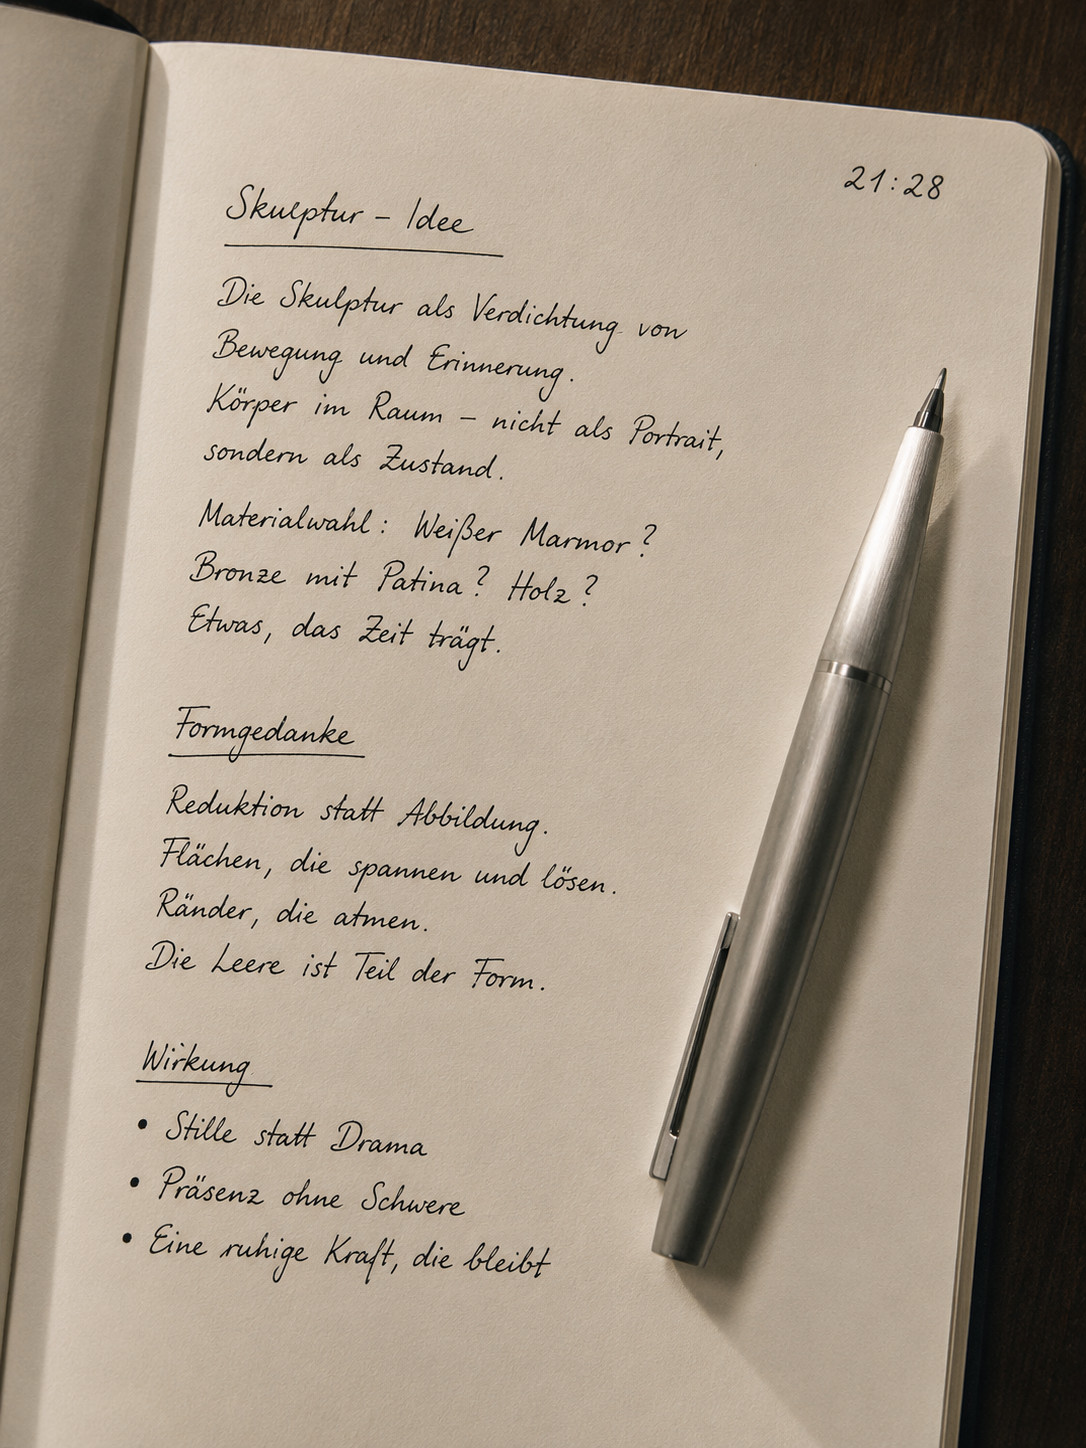 21:28
Skulptur – Idee
Die Skulptur als Verdichtung von
Bewegung und Erinnerung.
Körper im Raum – nicht als Portrait,
sondern als Zustand.
Materialwahl: Weißer Marmor?
Bronze mit Patina? Holz?
Etwas, das Zeit trägt.
Formgedanke
Reduktion statt Abbildung.
Flächen, die spannen und lösen.
Ränder, die atmen.
Die Leere ist Teil der Form.
Wirkung
• Stille statt Drama
• Präsenz ohne Schwere
• Eine ruhige Kraft, die bleibt